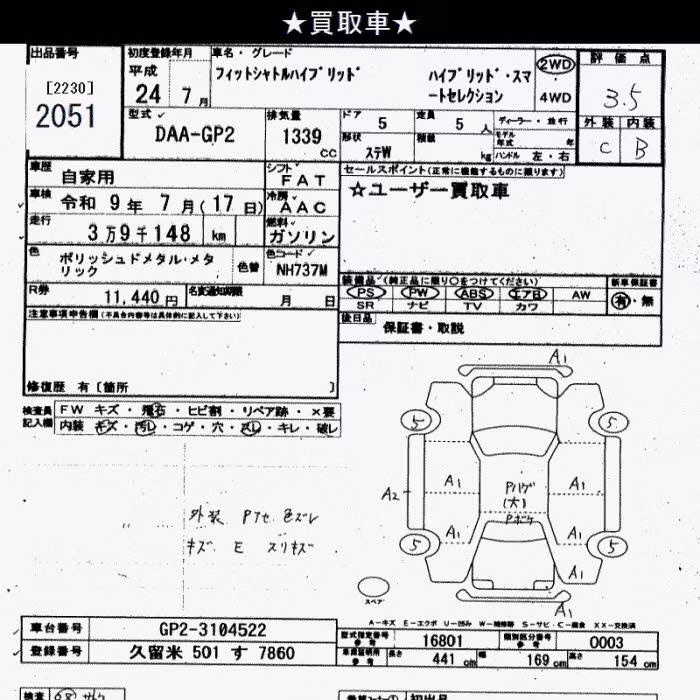 ★買取車★
出品番号
[2230]
2051
初度登録年月
平成
24 7 月
車名・グレード
フィットシャトルハイブリッド ハイブリッド・スマ
ートセレクション
2WD
4WD
評価点
3.5
外装 内装
C B
型式
DAA-GP2
排気量
1339
cc
ドア 5
定員 5 人
形状 ステW
積載 kg
ディーラー・並行
モデル年式 年
ハンドル 左・右
車歴
自家用
シフト
FAT
セールスポイント(正常に機能するものに限ります)
☆ユーザー買取車
車検
令和 9 年 7 月(17 日)
冷房
AAC
走行
3 万 9 千 148 km
燃料
ガソリン
色
ポリッシュドメタル・メタ
リック
色替
色コード
NH737M
装備品(純正品に限り○をつけてください)
PS PW ABS エアB AW
SR ナビ TV カワ
新車保証書
有・無
R券
11,440 円
名変通知期限
月 日
後日品
保証書・取説
注意事項申告欄(不具合内容等は具体的に記入して下さい)
修復歴 有〔箇所 〕
検査員
記入欄
FW キズ・飛石・ヒビ割・リペア跡・×要
内装 キズ・汚レ・コゲ・穴・スレ・キレ・破レ
外装 Pアセ 色ズレ
キズ E スリキズ
A1
5 5
A1 A1
A2
Pハゲ
(大)
Pボケ
A1 A1
5 5
A1
A1
スペア
A-キズ E-エクボ U-凹み W-補修跡 S-サビ・C-腐食 XX-交換済
車台番号
GP2-3104522
登録番号
久留米 501 す 7860
型式指定番号
参考
16801
類別区分番号
参考
0003
車庫証明用
参考
長さ 441 cm 幅 169 cm 高さ 154 cm
検査